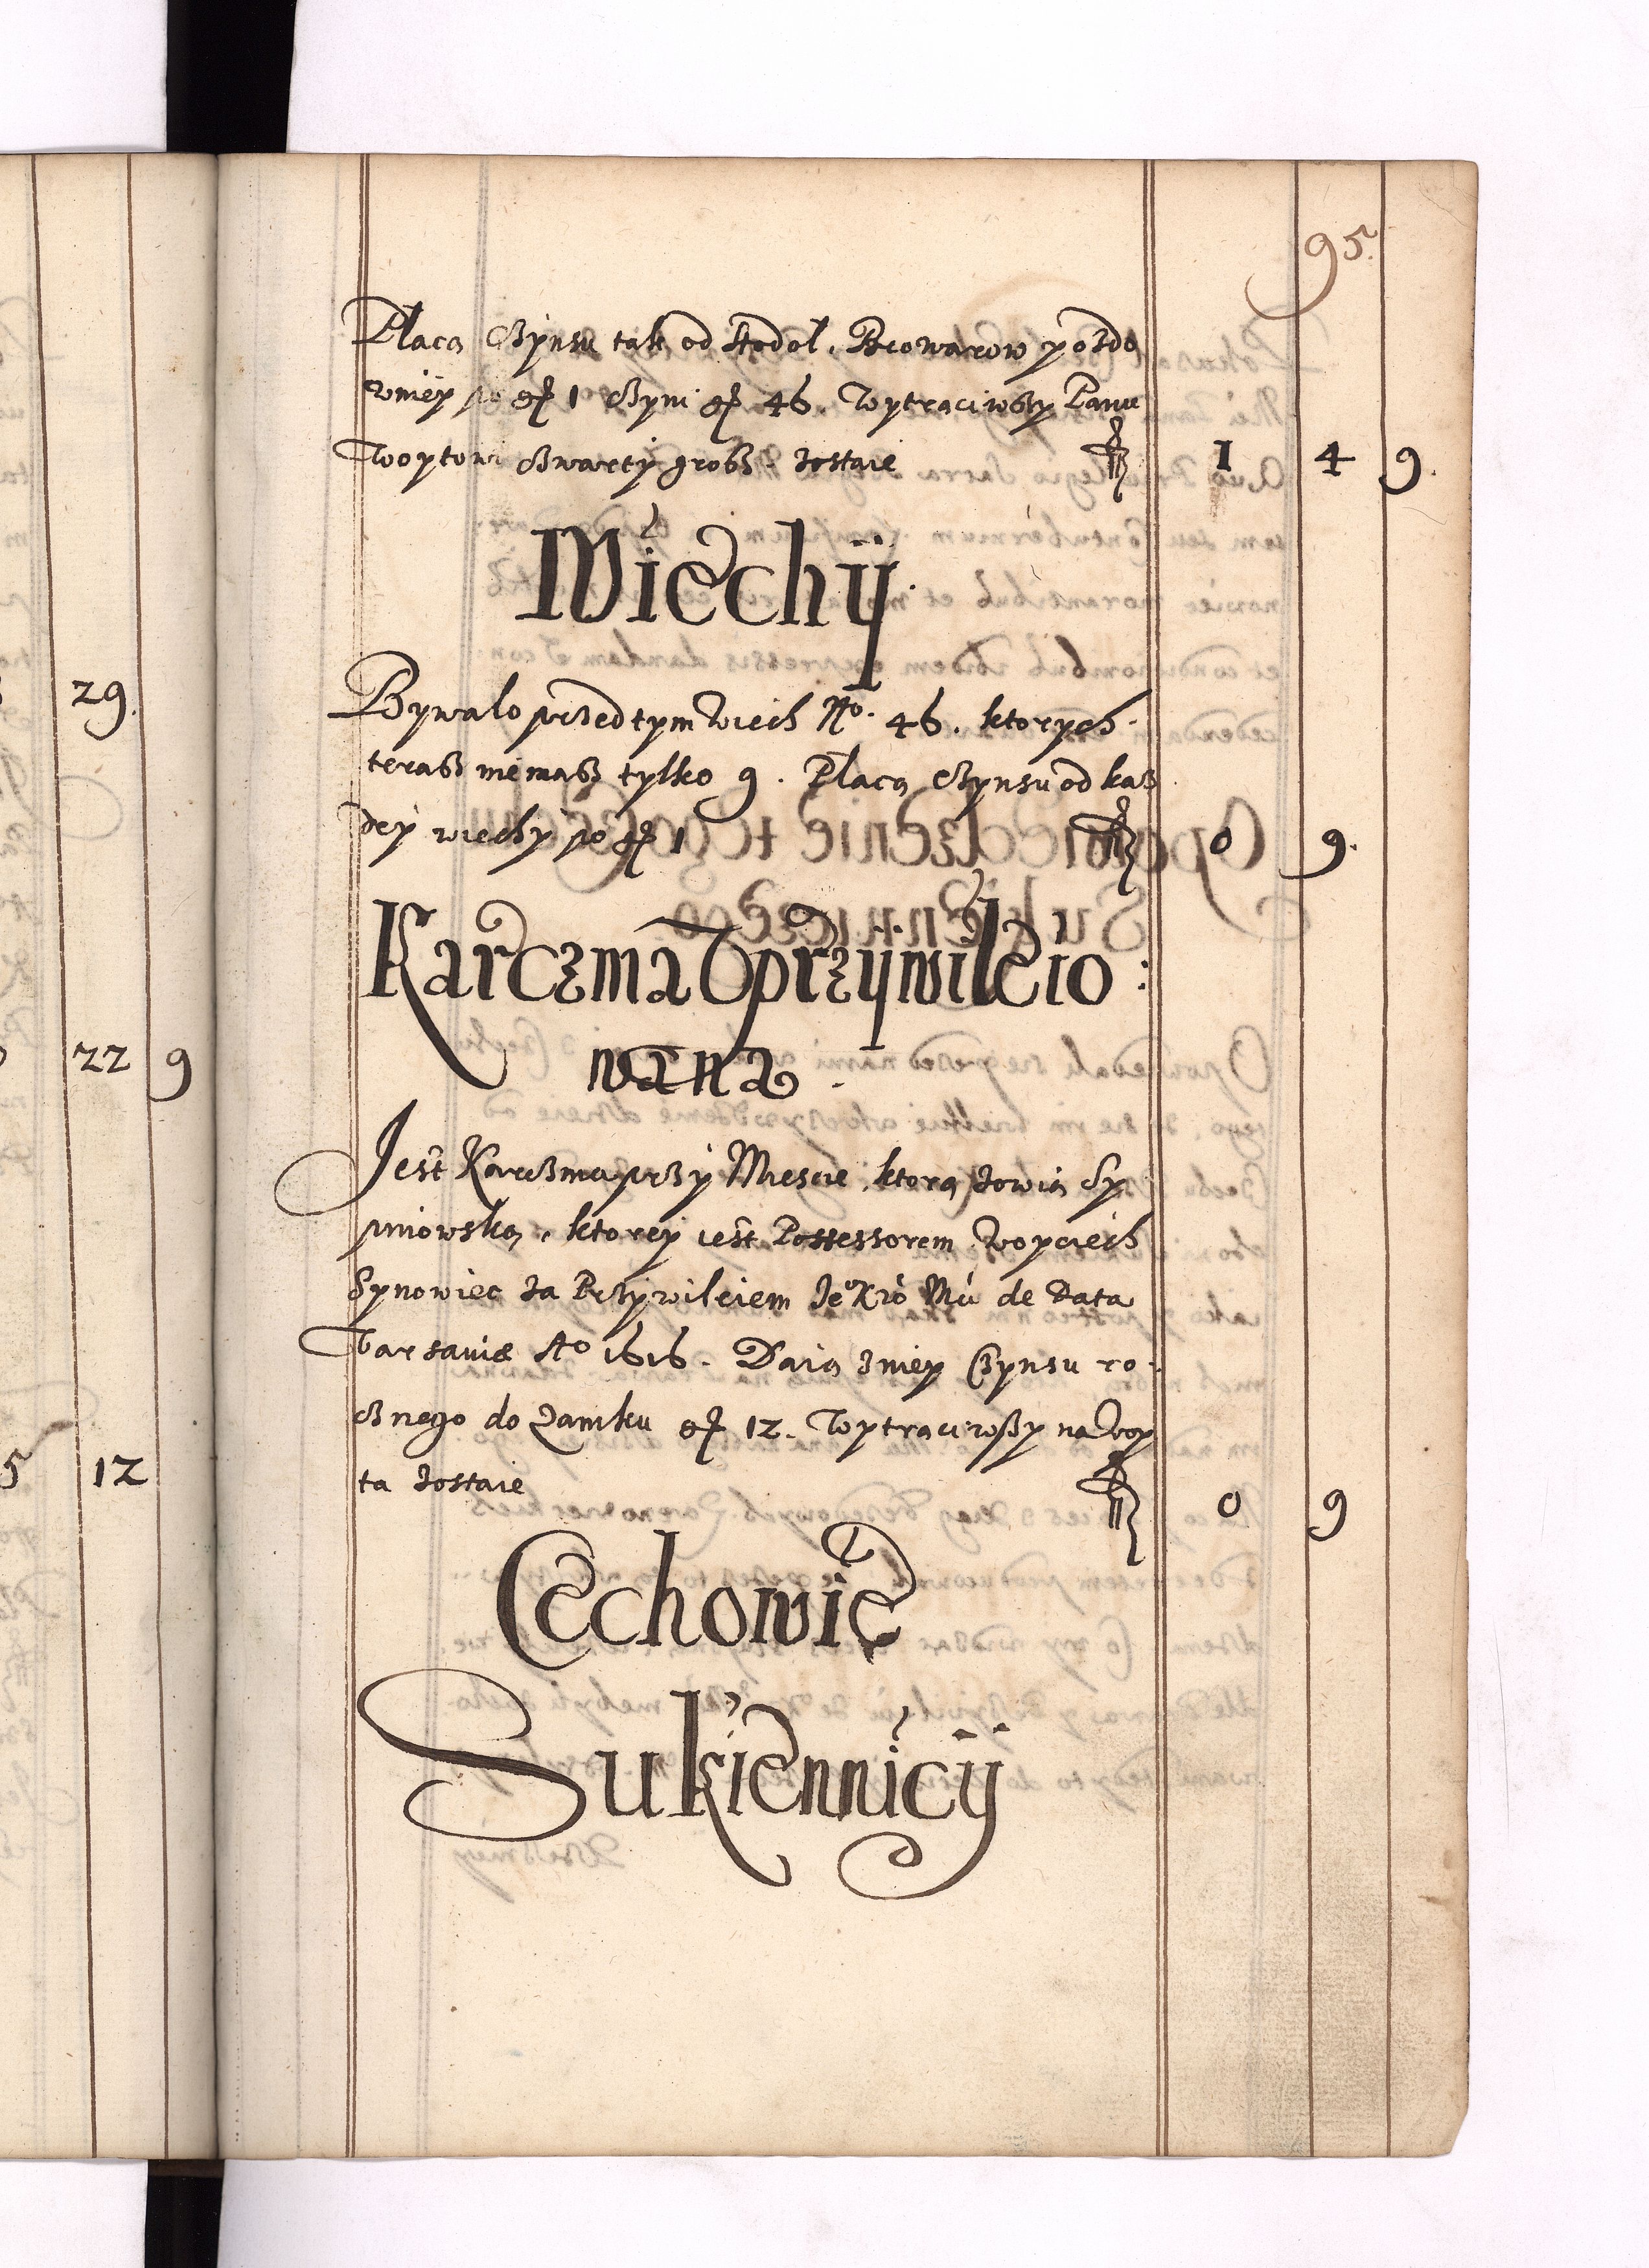 95.
Placą Czynsu tak od Stodol, Browarow y ozdo
wniey po gr 1 Czyni gr 46. Wytrąciwszy Panu
Woytowi czwarty grosz. Zostaie fl 1 4 9.
Wiechij
Bywało przed tym Wiech No. 46. ktorych
teraz niemasz tylko 9. Płacą Czynsu od kaz
dey wiechy po gr 1 fl 0 9.
Karczma Vprzywileio:
wana.
Jest Karczma przy Miescie, ktorą zowią Sy
pniowską, ktorey iest Possessorem Woyciech
Synowiec za Przywileiem Jeo Kro Mci de Data
Varsaviæ Ao 1616. Daią z niey Czynsu ro:
cznego do Zamku gr 12. Wytrąciwszy na Woy
ta zostaie fl 0 9
Cechowie
Sukiennicij
29.
22 9
5 12